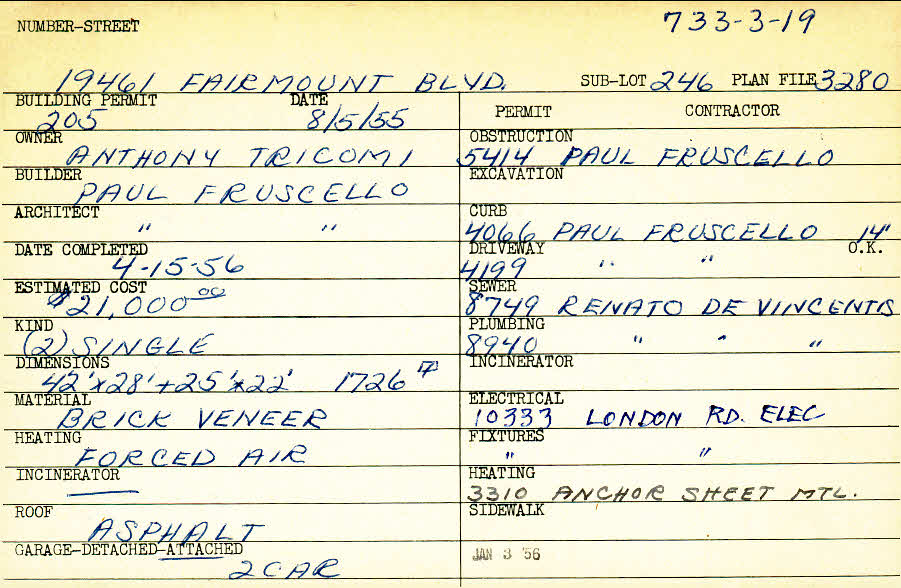 NUMBER-STREET 733-3-19
19461 FAIRMOUNT BLVD. SUB-LOT 246 PLAN FILE 3280
BUILDING PERMIT DATE
205 8/5/55
PERMIT CONTRACTOR
OWNER
ANTHONY TRICOMI
OBSTRUCTION
5414 PAUL FRUSCELLO
BUILDER
PAUL FRUSCELLO
EXCAVATION
ARCHITECT
" "
CURB
4066 PAUL FRUSCELLO 14'
DATE COMPLETED
4-15-56
DRIVEWAY O.K.
4199 " "
ESTIMATED COST
$21,000 00
SEWER
8749 RENATO DE VINCENTIS
KIND
(2) SINGLE
PLUMBING
8940 " " "
DIMENSIONS
42'x28'+25'x22' 1726
INCINERATOR
MATERIAL
BRICK VENEER
ELECTRICAL
10333 LONDON RD. ELEC
HEATING
FORCED AIR
FIXTURES
" "
INCINERATOR
—
HEATING
3310 ANCHOR SHEET MTL.
ROOF
ASPHALT
SIDEWALK
GARAGE-DETACHED-ATTACHED
2 CAR
JAN 3 '56